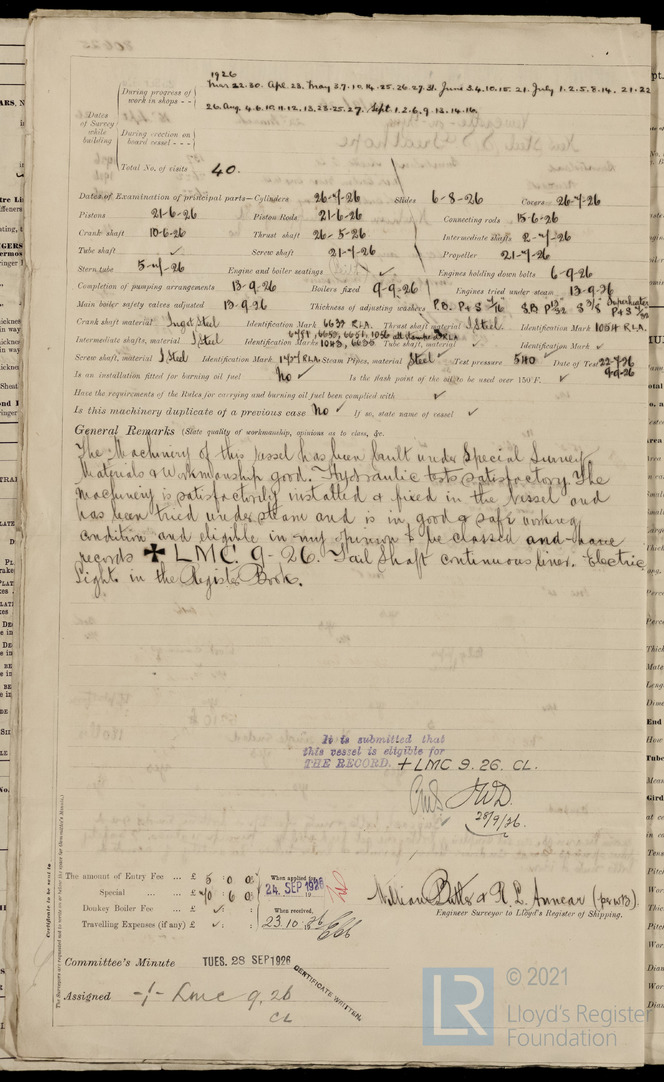 1926
During progress of work in shops - - Mar. 22. 30. Apr. 23. May 3. 7. 10. 14. 25. 26. 27. 31. June 3. 4. 10. 15. 21. July 1. 2. 5. 8. 14. 21. 22
26. Aug. 4. 6. 10. 11. 12. 13. 23. 25. 27. Sept. 1. 2. 6. 9. 13. 14. 16.
Dates of Survey while building
During erection on board vessel - - -
Total No. of visits 40.
Dates of Examination of principal parts—Cylinders 26-7-26 Slides 6-8-26 Covers 26-7-26
Pistons 21-6-26 Piston Rods 21-6-26 Connecting rods 15-6-26
Crank shaft 10-6-26 Thrust shaft 26-5-26 Intermediate shafts 2-7-26
Tube shaft ✓ Screw shaft 21-7-26 Propeller 21-7-26
Stern tube 5-7-26 Engine and boiler seatings ✓ Engines holding down bolts 6-9-26
Completion of pumping arrangements 13-9-26 Boilers fixed 9-9-26 Engines tried under steam 13-9-26
Main boiler safety valves adjusted 13-9-26 Thickness of adjusting washers P.B. P+S S.B. Superheater P+S
Crank shaft material Ingot Steel Identification Mark 6637 R.L.A. Thrust shaft material I Steel. Identification Mark 1054 R.L.A.
Intermediate shafts, material I Steel Identification Marks 1043, 6636 Tube shaft, material ✓ Identification Mark ✓
Screw shaft, material I Steel Identification Mark 1474 RLA Steam Pipes, material Steel Test pressure 540 Date of Test 22-7-26
9-9-26
Is an installation fitted for burning oil fuel No ✓ Is the flash point of the oil to be used over 150°F. ✓
Have the requirements of the Rules for carrying and burning oil fuel been complied with ✓
Is this machinery duplicate of a previous case No ✓ If so, state name of vessel ✓
General Remarks (State quality of workmanship, opinions as to class, &c.
The Machinery of this Vessel has been built under Special Survey.
Materials & Workmanship good. Hydraulic tests satisfactory. The
machinery is satisfactorily installed & fixed in the Vessel and
has been tried under steam and is in good & safe working
condition and eligible in my opinion to be classed and have
records ✠ LMC. 9-26. Tail Shaft continuous liner. Electric
Light in the Register Book.
It is submitted that
this vessel is eligible for
THE RECORD. + LMC 9. 26. CL.
JWD.
28/9/26.
The amount of Entry Fee ... £ 5 : 0 : 0
Special ... ... £ 70 : 6 : 0
Donkey Boiler Fee ... £ ✓ : :
Travelling Expenses (if any) £ ✓ : :
When applied for,
24. SEP 1926
When received,
23.10.26
William Butts & R. L. Annear (per WB).
Engineer Surveyor to Lloyd's Register of Shipping.
Committee's Minute TUES. 28 SEP 1926
CERTIFICATE WRITTEN.
Assigned -/- Lmc 9, 26
CL
Certificate to be sent to
© 2021
Lloyd's Register
Foundation
LR